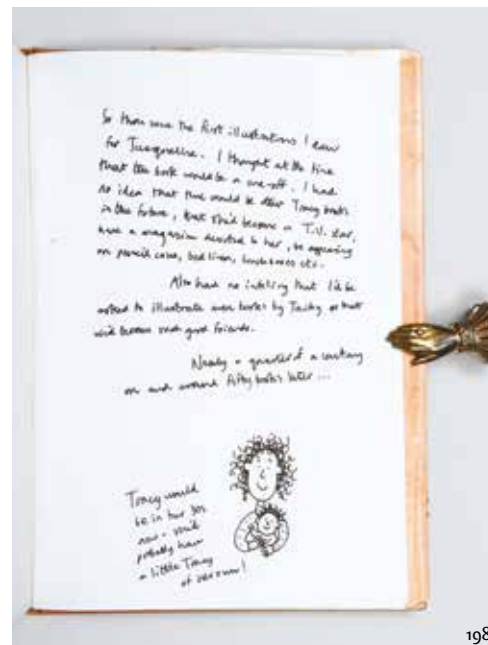 So these were the first illustrations I drew
for Jacqueline. I thought at the time
that the book would be a one-off. I had
no idea that there would be other Tracy books
in the future, that she'd become a T.V. star,
have a magazine devoted to her, be appearing
on pencil cases, bed linen, lunchboxes etc.
Also had no inkling that I'd be
asked to illustrate more books by Jacky or that
we'd become such good friends.
Nearly a quarter of a century
on and around fifty books later ...
Tracy would
be in her 30s
now - and
probably have
a little Tracy
of her own!
198